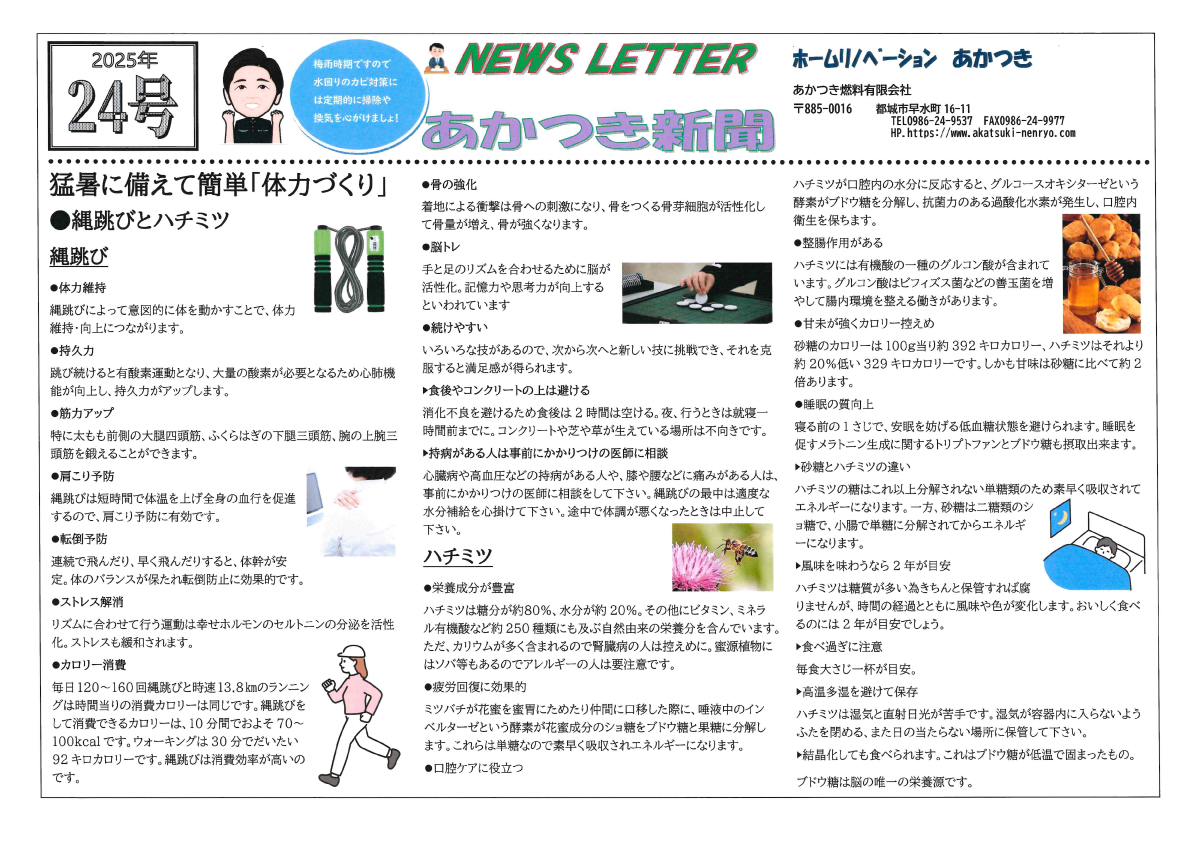 2025年
24号
梅雨時期ですので
水回りのカビ対策に
は定期的に掃除や
換気を心がけましょ!
NEWS LETTER
あかつき新聞
ホームリノベーション あかつき
あかつき燃料有限会社
〒885-0016 都城市早水町16-11
TEL0986-24-9537 FAX0986-24-9977
HP.https://www.akatsuki-nenryo.com
猛暑に備えて簡単「体力づくり」
●縄跳びとハチミツ
縄跳び
●体力維持
縄跳びによって意図的に体を動かすことで、体力
維持・向上につながります。
●持久力
跳び続けると有酸素運動となり、大量の酸素が必要となるため心肺機
能が向上し、持久力がアップします。
●筋力アップ
特に太もも前側の大腿四頭筋、ふくらはぎの下腿三頭筋、腕の上腕三
頭筋を鍛えることができます。
●肩こり予防
縄跳びは短時間で体温を上げ全身の血行を促進
するので、肩こり予防に有効です。
●転倒予防
連続で飛んだり、早く飛んだりすると、体幹が安
定。体のバランスが保たれ転倒防止に効果的です。
●ストレス解消
リズムに合わせて行う運動は幸せホルモンのセルトニンの分泌を活性
化。ストレスも緩和されます。
●カロリー消費
毎日120～160回縄跳びと時速13.8㎞のランニン
グは時間当りの消費カロリーは同じです。縄跳びを
して消費できるカロリーは、10分間でおよそ70～
100kcalです。ウォーキングは30分でだいたい
92キロカロリーです。縄跳びは消費効率が高いの
です。
●骨の強化
着地による衝撃は骨への刺激になり、骨をつくる骨芽細胞が活性化し
て骨量が増え、骨が強くなります。
●脳トレ
手と足のリズムを合わせるために脳が
活性化。記憶力や思考力が向上する
といわれています
●続けやすい
いろいろな技があるので、次から次へと新しい技に挑戦でき、それを克
服すると満足感が得られます。
▶食後やコンクリートの上は避ける
消化不良を避けるため食後は2時間は空ける。夜、行うときは就寝一
時間前までに。コンクリートや芝や草が生えている場所は不向きです。
▶持病がある人は事前にかかりつけの医師に相談
心臓病や高血圧などの持病がある人や、膝や腰などに痛みがある人は、
事前にかかりつけの医師に相談をして下さい。縄跳びの最中は適度な
水分補給を心掛けて下さい。途中で体調が悪くなったときは中止して
下さい。
ハチミツ
●栄養成分が豊富
ハチミツは糖分が約80%、水分が約20%。その他にビタミン、ミネラ
ル有機酸など約250種類にも及ぶ自然由来の栄養分を含んでいます。
ただ、カリウムが多く含まれるので腎臓病の人は控えめに。蜜源植物に
はソバ等もあるのでアレルギーの人は要注意です。
●疲労回復に効果的
ミツバチが花蜜を蜜胃にためたり仲間に口移した際に、唾液中のイン
ベルターゼという酵素が花蜜成分のショ糖をブドウ糖と果糖に分解し
ます。これらは単糖なので素早く吸収されエネルギーになります。
●口腔ケアに役立つ
ハチミツが口腔内の水分に反応すると、グルコースオキシターゼという
酵素がブドウ糖を分解し、抗菌力のある過酸化水素が発生し、口腔内
衛生を保ちます。
●整腸作用がある
ハチミツには有機酸の一種のグルコン酸が含まれて
います。グルコン酸はビフィズス菌などの善玉菌を増
やして腸内環境を整える働きがあります。
●甘未が強くカロリー控えめ
砂糖のカロリーは100g当り約392キロカロリー、ハチミツはそれより
約20%低い329キロカロリーです。しかも甘味は砂糖に比べて約2
倍あります。
●睡眠の質向上
寝る前の1さじで、安眠を妨げる低血糖状態を避けられます。睡眠を
促すメラトニン生成に関するトリプトファンとブドウ糖も摂取出来ます。
▶砂糖とハチミツの違い
ハチミツの糖はこれ以上分解されない単糖類のため素早く吸収されて
エネルギーになります。一方、砂糖は二糖類のシ
ョ糖で、小腸で単糖に分解されてからエネルギ
ーになります。
▶風味を味わうなら2年が目安
ハチミツは糖質が多い為きちんと保管すれば腐
りませんが、時間の経過とともに風味や色が変化します。おいしく食べ
るのには2年が目安でしょう。
▶食べ過ぎに注意
毎食大さじ一杯が目安。
▶高温多湿を避けて保存
ハチミツは湿気と直射日光が苦手です。湿気が容器内に入らないよう
ふたを閉める、また日の当たらない場所に保管して下さい。
▶結晶化しても食べられます。これはブドウ糖が低温で固まったもの。
ブドウ糖は脳の唯一の栄養源です。